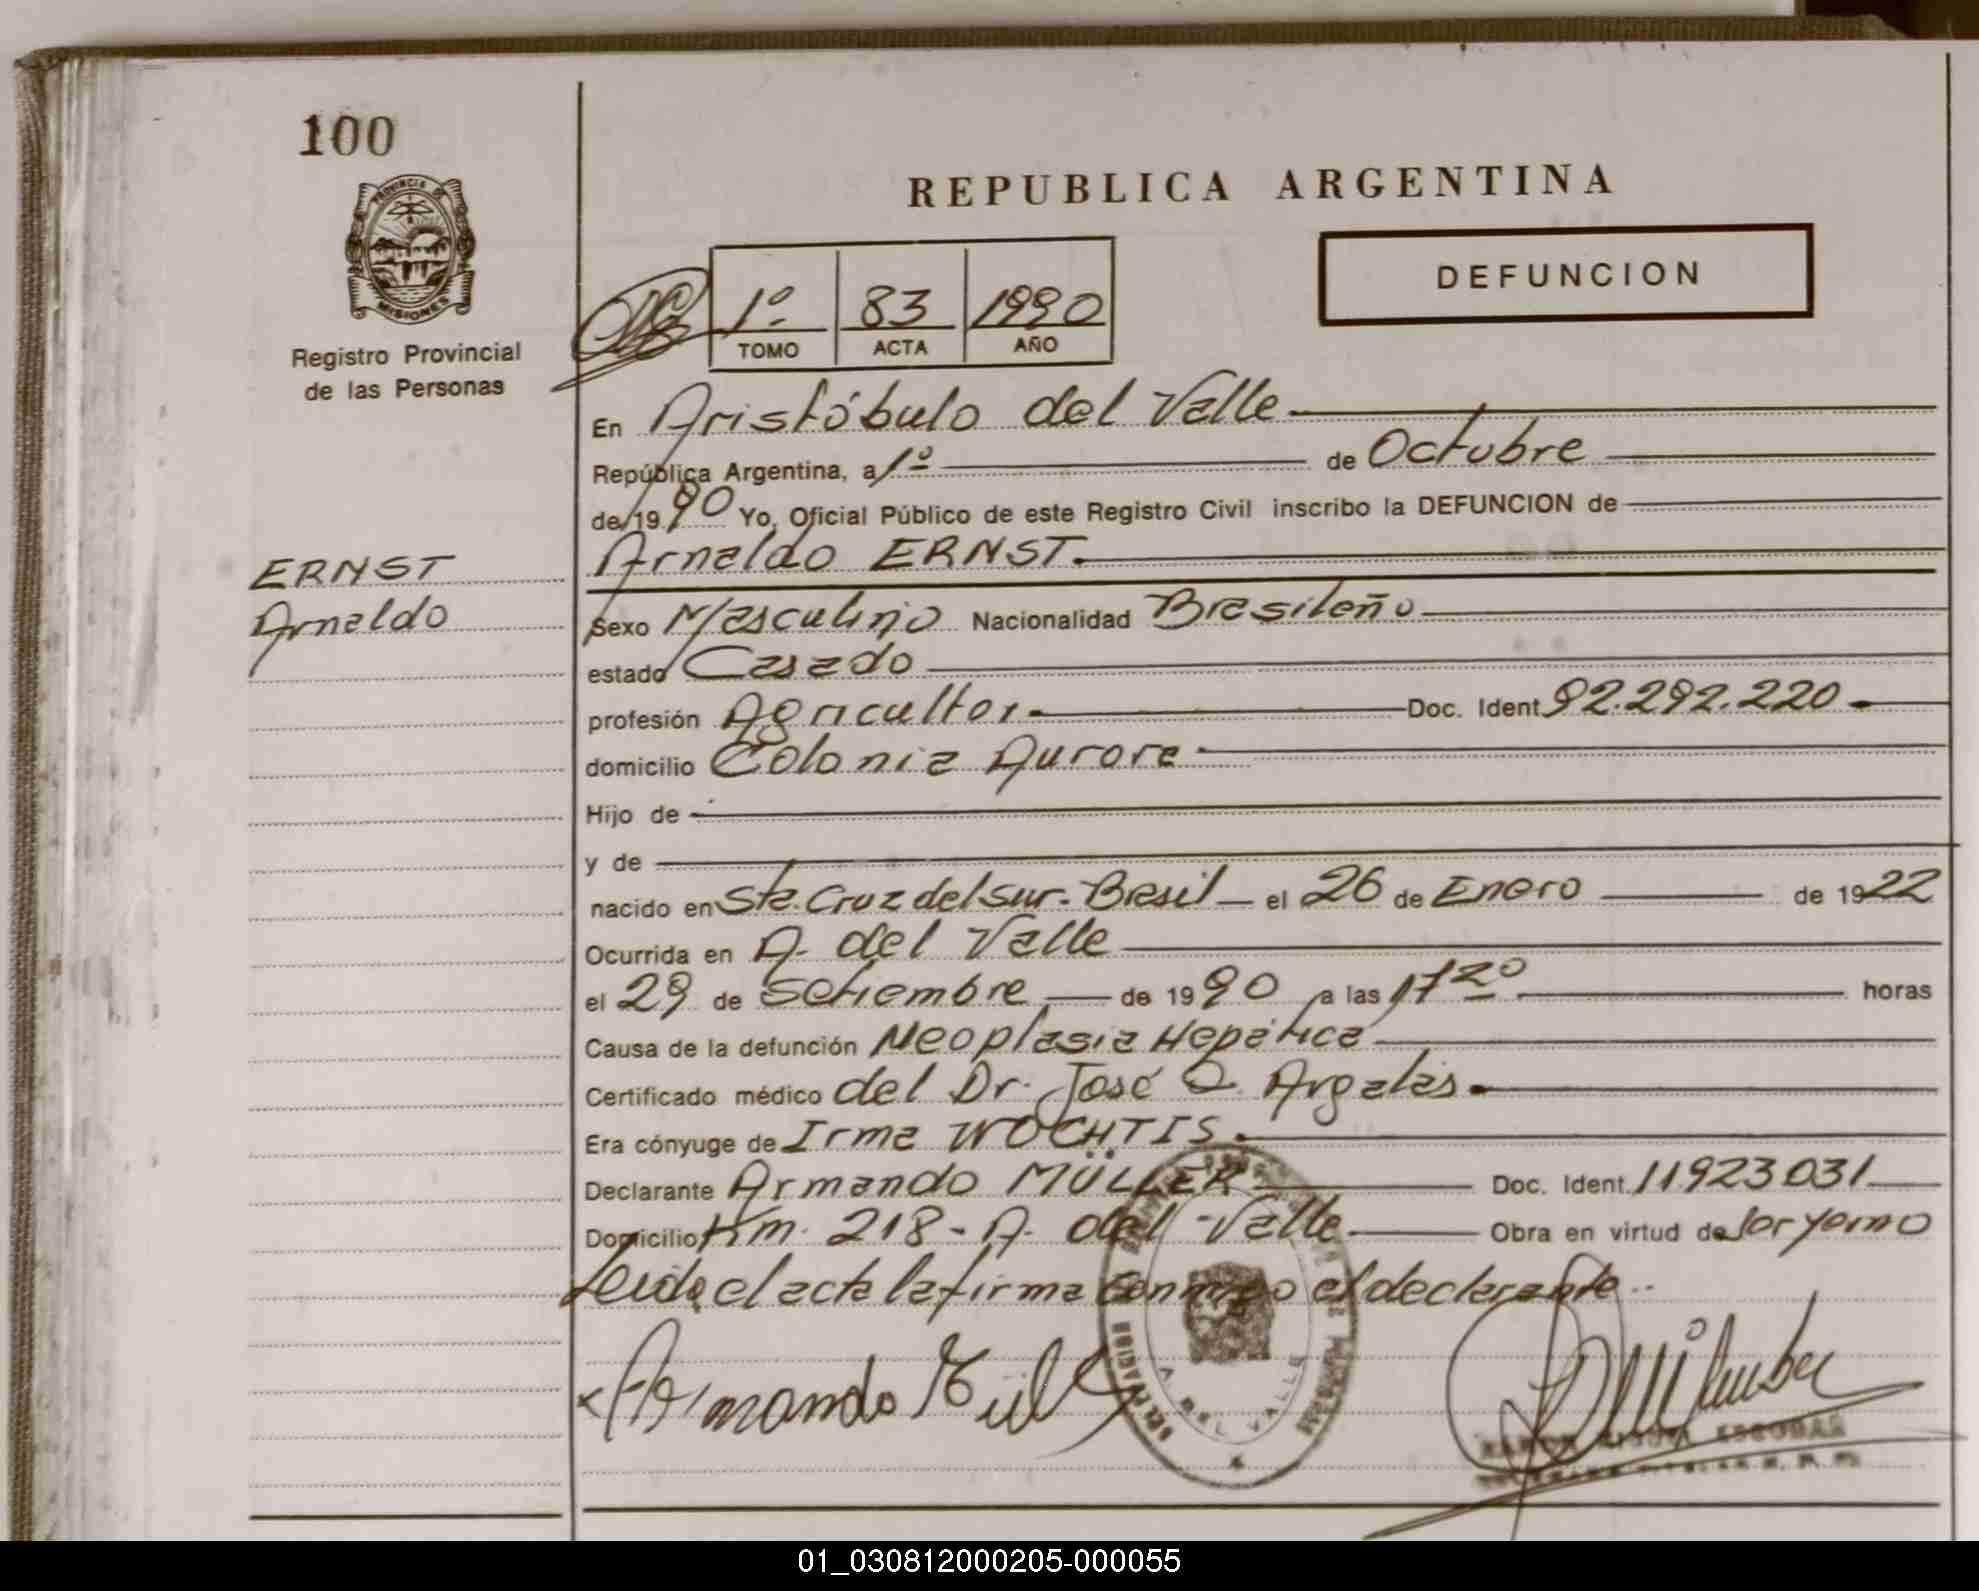 100
PROVINCIA DE
MISIONES
Registro Provincial
de las Personas
REPUBLICA ARGENTINA
DEFUNCION
1º 83 1990
TOMO ACTA AÑO
En Aristóbulo del Valle
República Argentina, a 1º de Octubre
de 1990 Yo, Oficial Público de este Registro Civil inscribo la DEFUNCION de
ERNST
Arnaldo
Arnaldo ERNST.
Sexo Masculino Nacionalidad Brasileño
estado Casado
profesión Agricultor. Doc. Ident 92.292.220.
domicilio Colonia Aurora
Hijo de
y de
nacido en Sta. Cruz del Sur-Brasil el 26 de Enero de 1922
Ocurrida en A. del Valle
el 29 de Setiembre de 1990 a las 17 20 horas
Causa de la defunción Neoplasia Hepática
Certificado médico del Dr. José Argalás.
Era cónyuge de Irma WOCHTIS.
Declarante Armando MÜLLER Doc. Ident. 11923031
Domicilio Km. 218-A. del Valle Obra en virtud de Ser Yerno
Leida el acta la firma conmigo el declarante..
Armando Müll
A. DEL VALLE
RAMON MIGUEL ESCOBAR
01_030812000205-000055